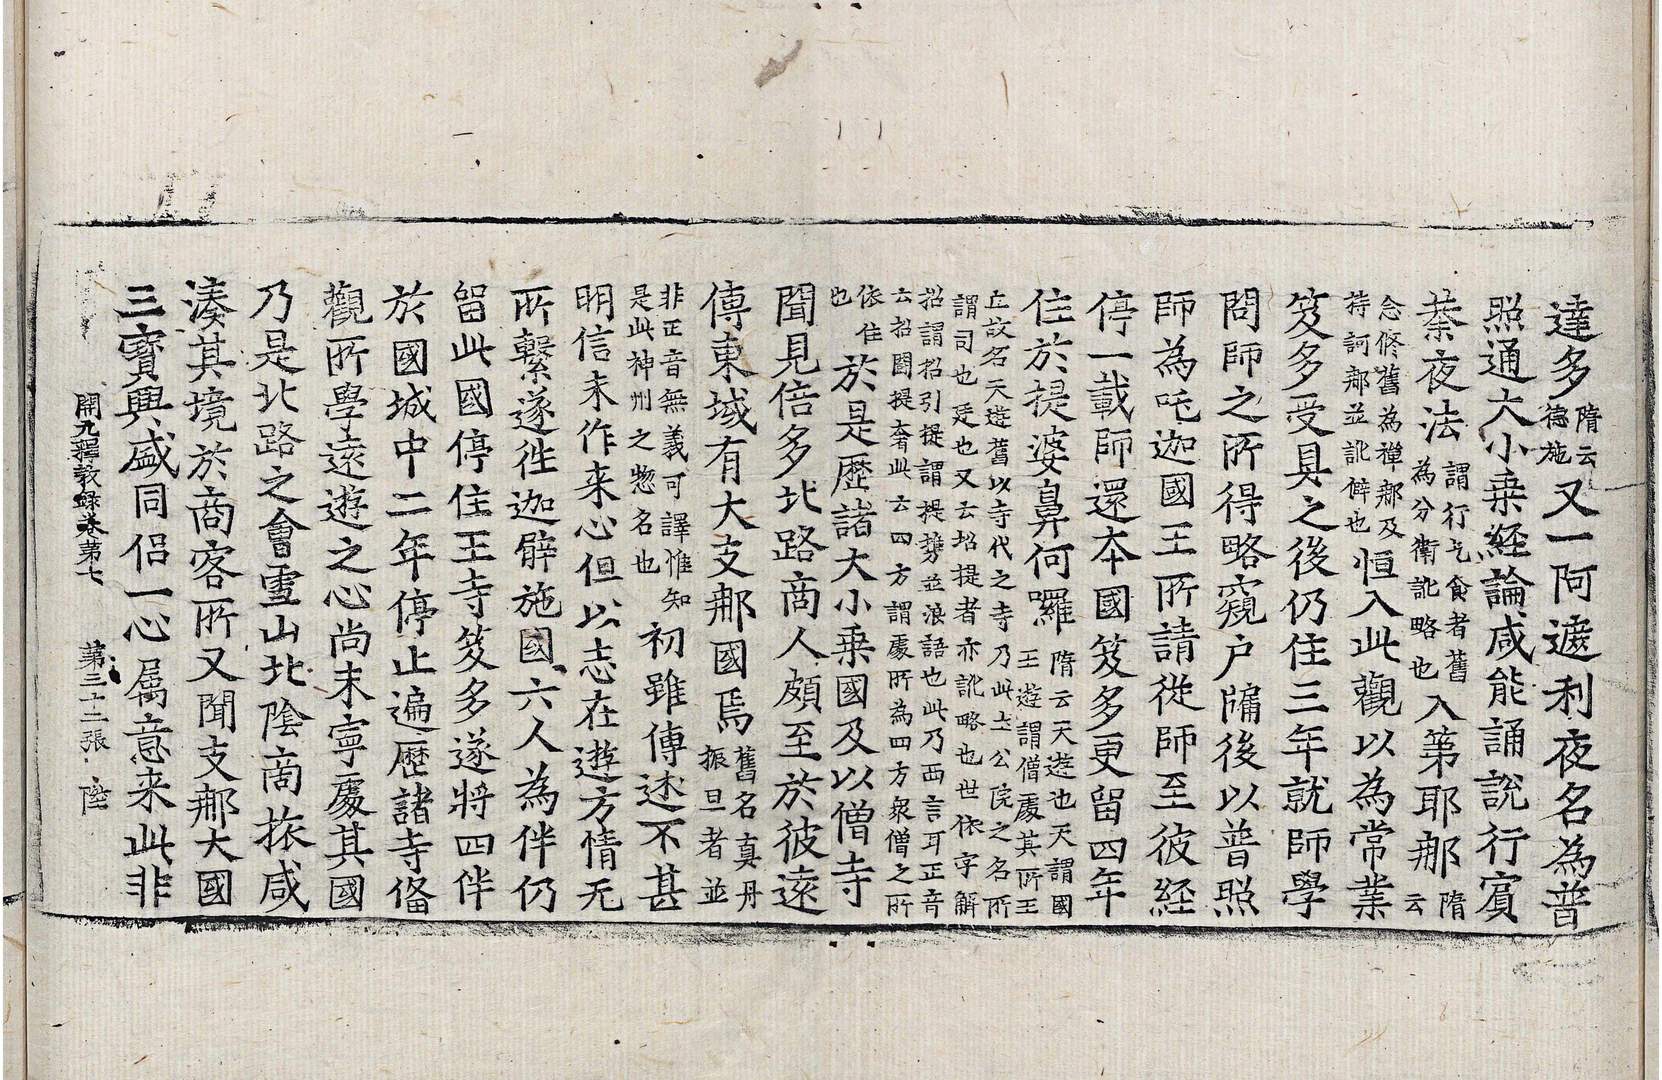 達多隋云德施又一阿遮利夜名為普
照通大小乗経論咸能誦說行賓
荼夜法謂行乞食者舊為分衛訛略也入第耶那隋云
念修舊為禪郍及持訶郍並訛僻也恒入此觀以為常業
笈多受具之後仍住三年就師學
問師之所得略窺户牖後以普照
師為吒迦國王所請從師至彼経
停一載師還本國笈多更留四年
住於提婆鼻何囉隋云天遊也天謂國王遊謂僧處其所王
立故名天遊舊以寺代之寺乃此土公院之名所
謂司也廷也又云招提者亦訛略也世依字解
招謂招引提謂提携並浪語也此乃西言耳正音
云招鬪提奢此云四方謂處所為四方衆僧之所
依住也於是歷諸大小乗國及以僧寺
聞見倍多北路商人頗至於彼遠
傳東域有大支郍國焉舊名真丹振旦者並
非正音無義可譯惟知是此神州之惣名也初雖傳述不甚
明信未作来心但以志在遊方情无
所繫遂徃迦臂施國六人為伴仍
留此國停住王寺笈多遂將四伴
於國城中二年停止遍歷諸寺俻
觀所學遠遊之心尚未寧處其國
乃是北路之會雪山北陰商旅咸
湊其境於商客所又聞支郍大國
三寶興盛同侶一心属意来此非
開元釋教録卷第七　第三十二張　陞